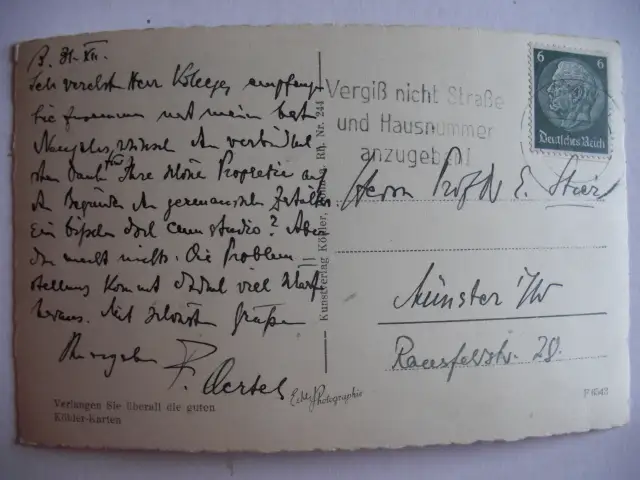 B. 31. XII.
Sehr verehrter Herr Kollege, empfangen
Sie zusammen mit meinen besten
Neujahrswünschen den verbindlich
sten Dank für Ihre schöne
den germanischen
Ein bißchen doch cum studio? Aber
das macht nichts. Die Problem
stellung kommt viel schärfer
heraus. Mit schönsten Grüßen
Ihr ergebener
F. Oertel
Verlangen Sie überall die guten
Köhler-Karten
Echte Photographie
Kunstverlag Köhler, Rh. Nr. 244
Vergiß nicht Straße
und Hausnummer
anzugeben!
6 6
Deutsches Reich
Herrn Prof. Dr. E. Stier
Münster i/W
Raesfeldstr. 28.